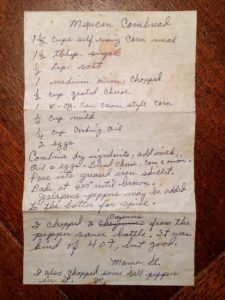 Mexican Cornbread
1 1/2 cups self rising corn meal
1 1/2 tblsp. sugar
1/2 tsp. salt
1 medium onion, chopped
1/2 cup grated cheese
1 8-oz. can cream style corn
3/4 cup milk
1/4 cup cooking oil
2 eggs
Combine dry ingredients, add milk,
oil & eggs. Blend cheese, corn & onion.
Pour into greased iron skillet.
Bake at 400° until brown.
Jalapeno peppers may be added
to the batter for spice.
I chopped 2 Cayenne from the
pepper sauce bottle. It was
kind of HOT, but good.
Mama
I also chopped some bell pepper
in it. M.